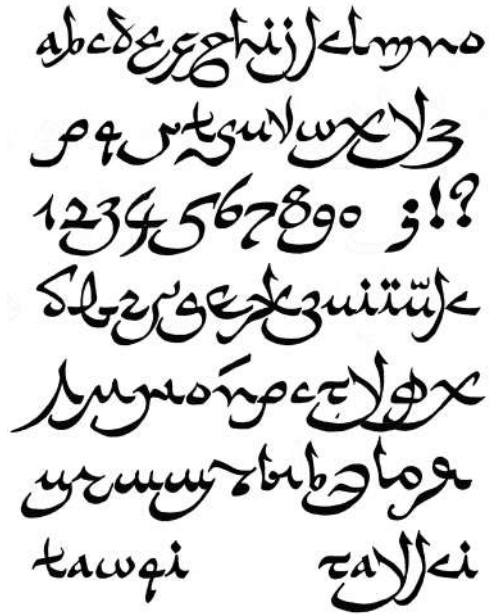 abcdefghijklmno
pqrtsuvwxyz
1234567890 ;!?
бвгґдеєжзиіїйк
лмнопрстуфх
цчшщъыьэюя
tawqi таукі